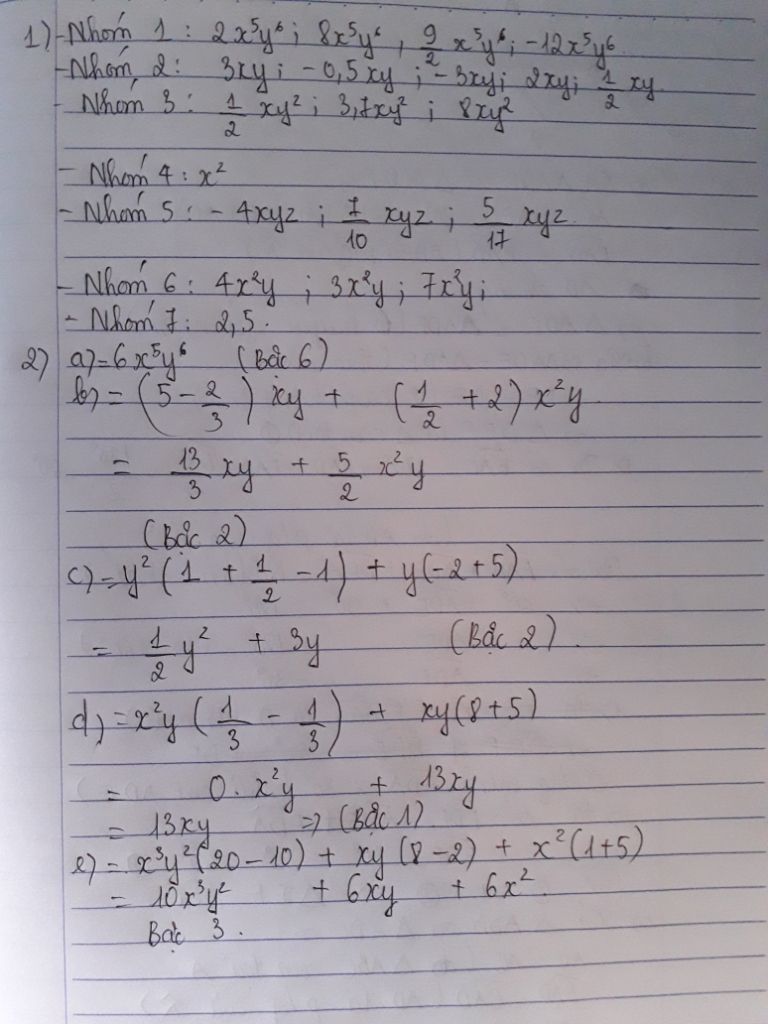 1) - Nhóm 1 : 2x⁵y⁶ ; 8x⁵y⁶ , 9/2 x⁵y⁶ ; -12x⁵y⁶
- Nhóm 2 : 3xy ; - 0,5xy ; - 3xy ; 2xy ; 1/2 xy
- Nhóm 3 : 1/2 xy² ; 3,7xy² ; 8xy²
- Nhóm 4 : x²
- Nhóm 5 : - 4xyz ; 7/10 xyz ; 5/17 xyz
- Nhóm 6 : 4x²y ; 3x²y ; 7x²y ;
- Nhóm 7 : 2,5 .
2) a) = 6x⁵y⁶ (Bậc 6)
b) = (5 - 2/3) xy + (1/2 + 2) x²y
= 13/3 xy + 5/2 x²y
(Bậc 2)
c) = y² (1 + 1/2 - 1) + y(-2+5)
= 1/2 y² + 3y (Bậc 2) .
d) = x²y (1/3 - 1/3) + xy(8+5)
= 0 . x²y + 13xy
= 13xy => (Bậc 1)
e) = x³y²(20-10) + xy(8-2) + x²(1+5)
= 10x³y² + 6xy + 6x²
Bậc 3 .